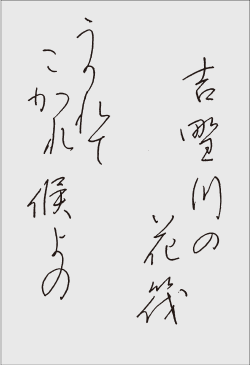 吉野川の
花筏
うかれて
こがれ候よの